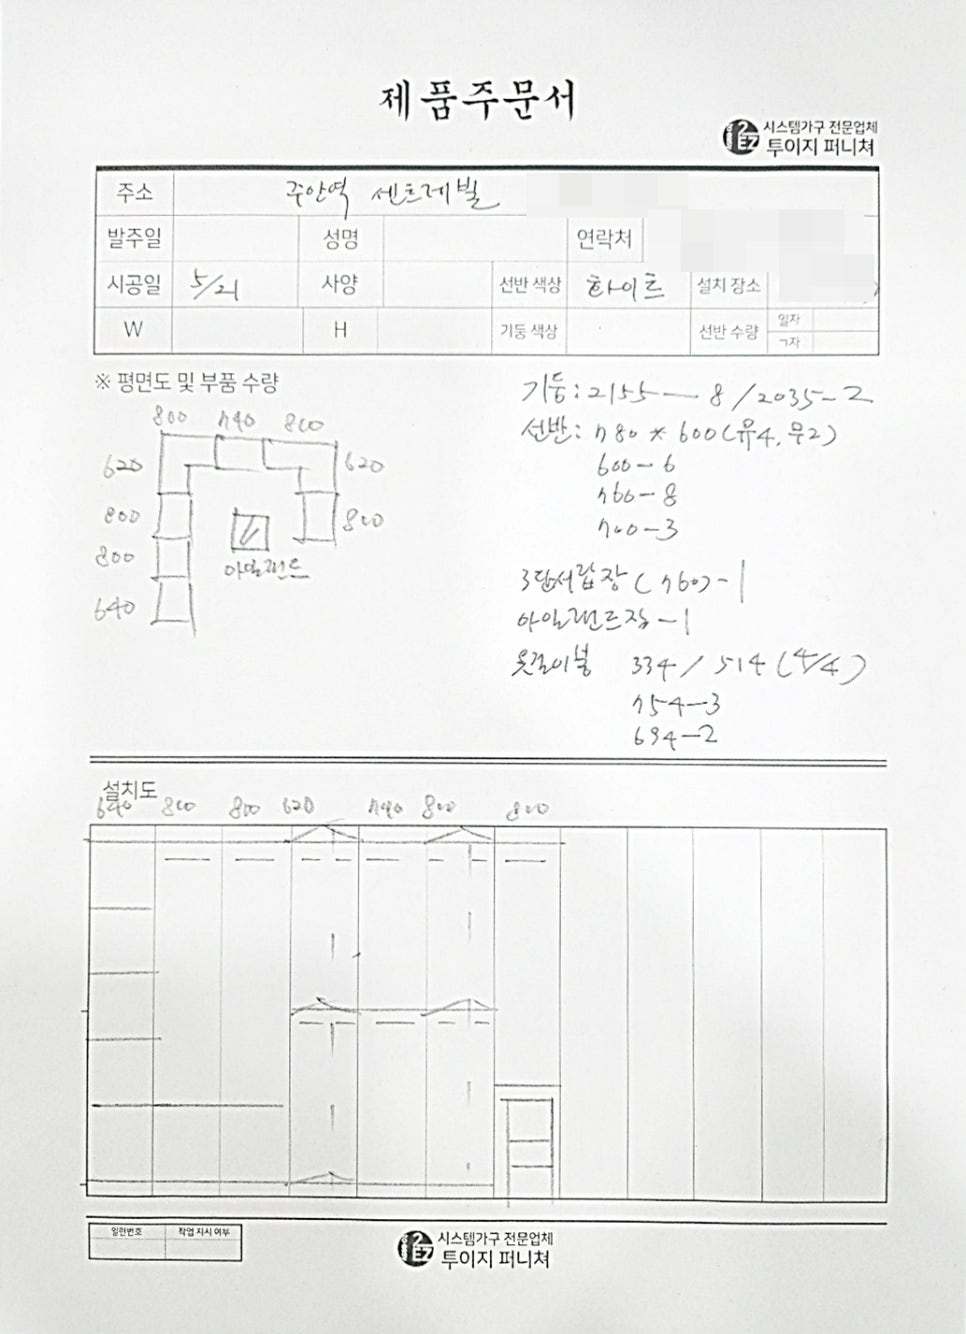 제품주문서
시스템가구 전문업체
투이지 퍼니쳐
주소 주안역 센트레빌
발주일 성명 연락처
시공일 5/21 사양 선반 색상 화이트 설치 장소
W H 기둥 색상 선반 수량 일자
ㄱ자
※ 평면도 및 부품 수량
기둥: 2155 — 8 / 2035 - 2
선반: 780 * 600 (유4, 무2)
600 - 6
760 - 8
700 - 3
3단서랍장 (760) - 1
아일랜드장 - 1
옷걸이봉 334 / 514 (4/4)
754 - 3
694 - 2
800 740 800
620 620
800 800
800
640
아일랜드
설치도
640 800 800 620 740 800 800
일련번호 작업 지시 여부
시스템가구 전문업체
투이지 퍼니쳐